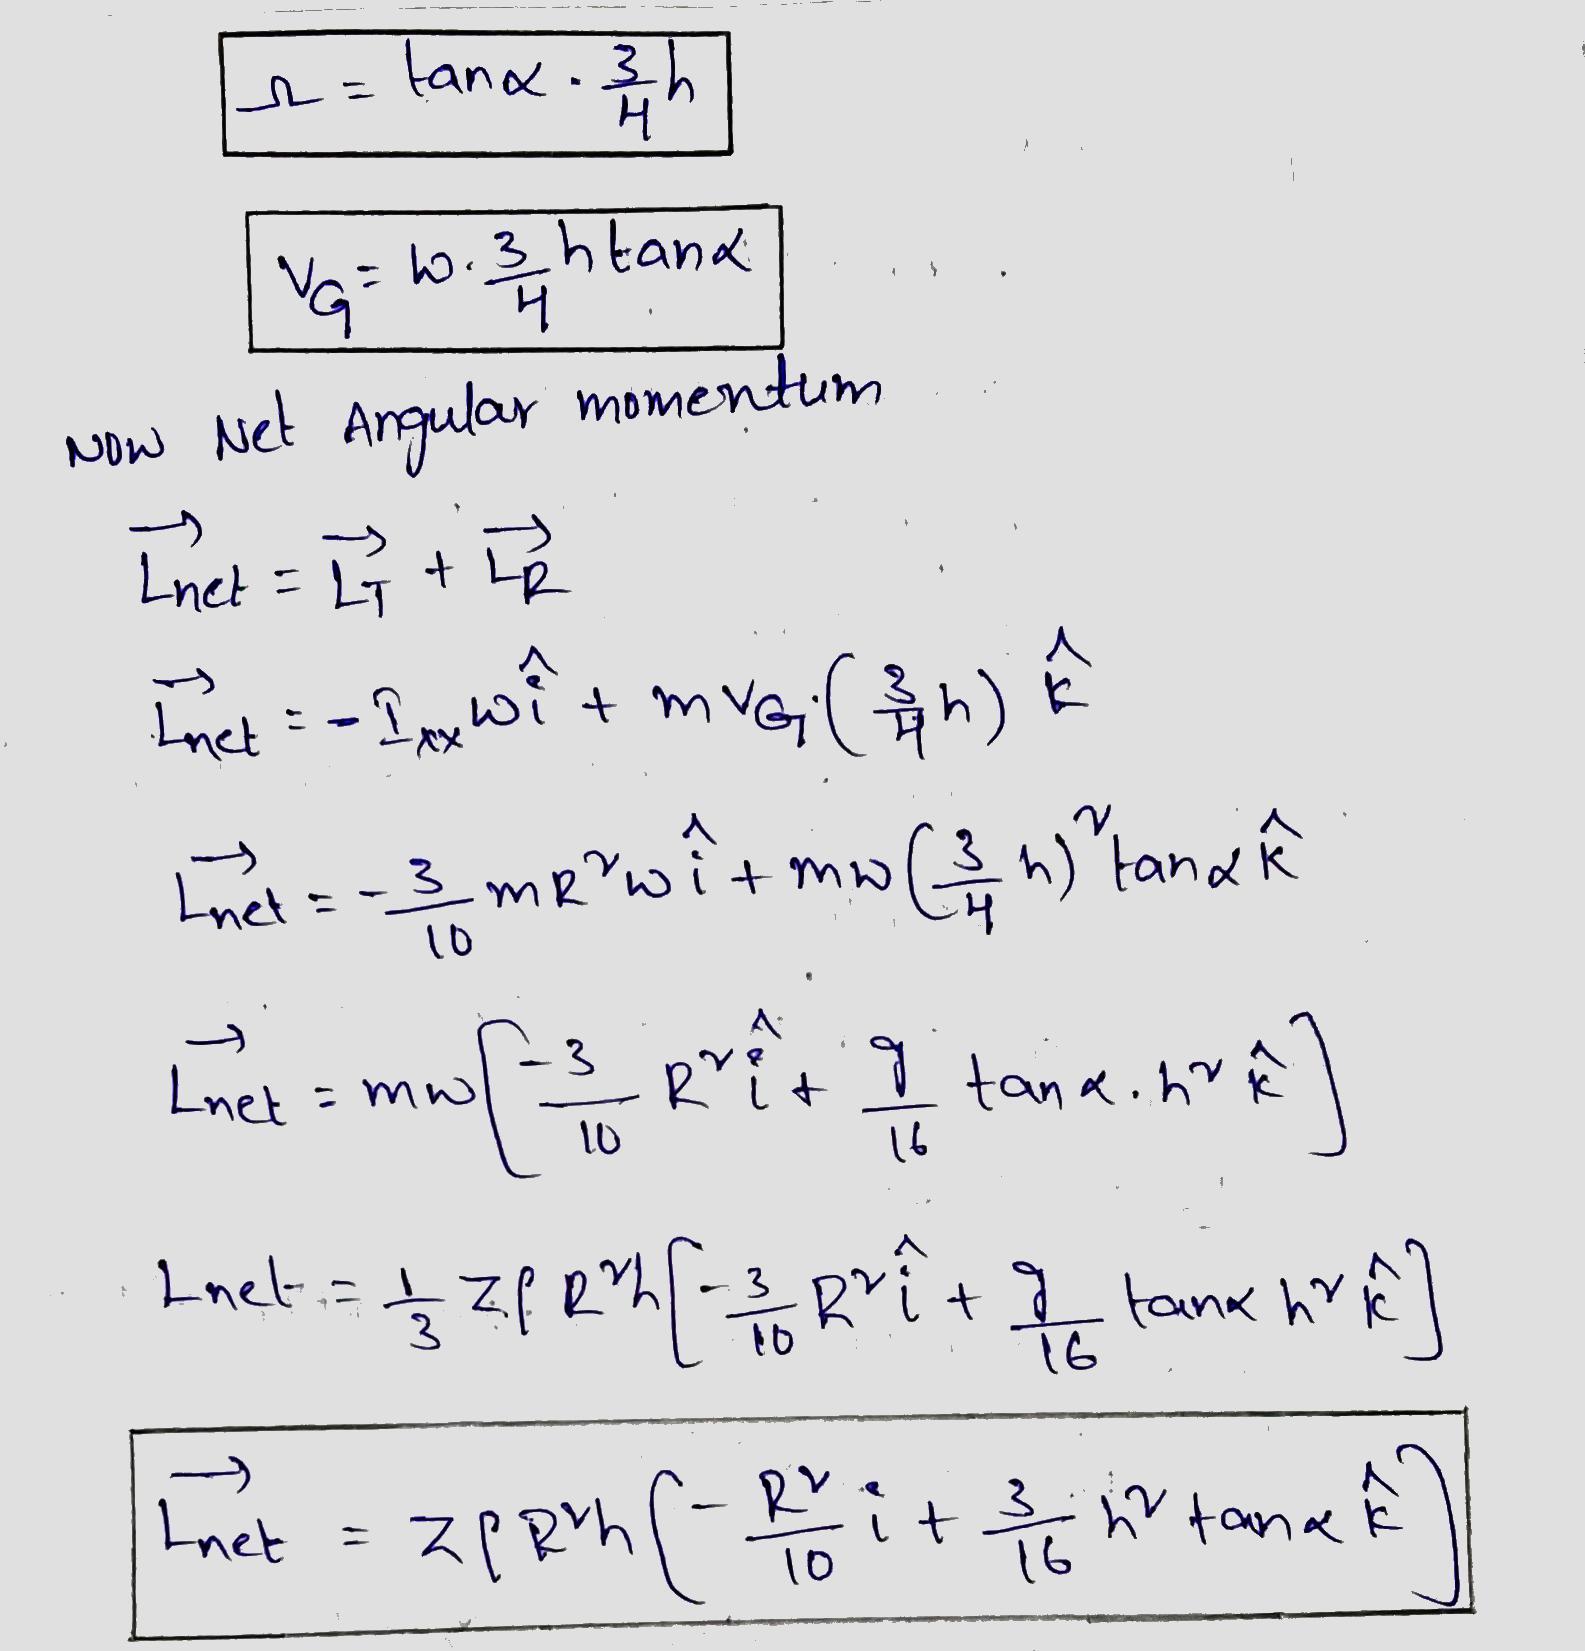 Ω = tanα · 3/4 h
V_G = W · 3/4 h tanα
NOW Net Angular momentum
L⃗net = L⃗_T + L⃗_R
L⃗net = - I_xx W î + m V_G · (3/4 h) k̂
L⃗net = - 3/10 m R² w î + m w (3/4 h)² tanα k̂
L⃗net = m w [ -3/10 R² î + 9/16 tanα . h² k̂ ]
Lnet = 1/3 z ρ R² h [ -3/10 R² î + 9/16 tanα h² k̂ ]
L⃗net = z ρ R² h ( - R²/10 i + 3/16 h² tanα k̂ )